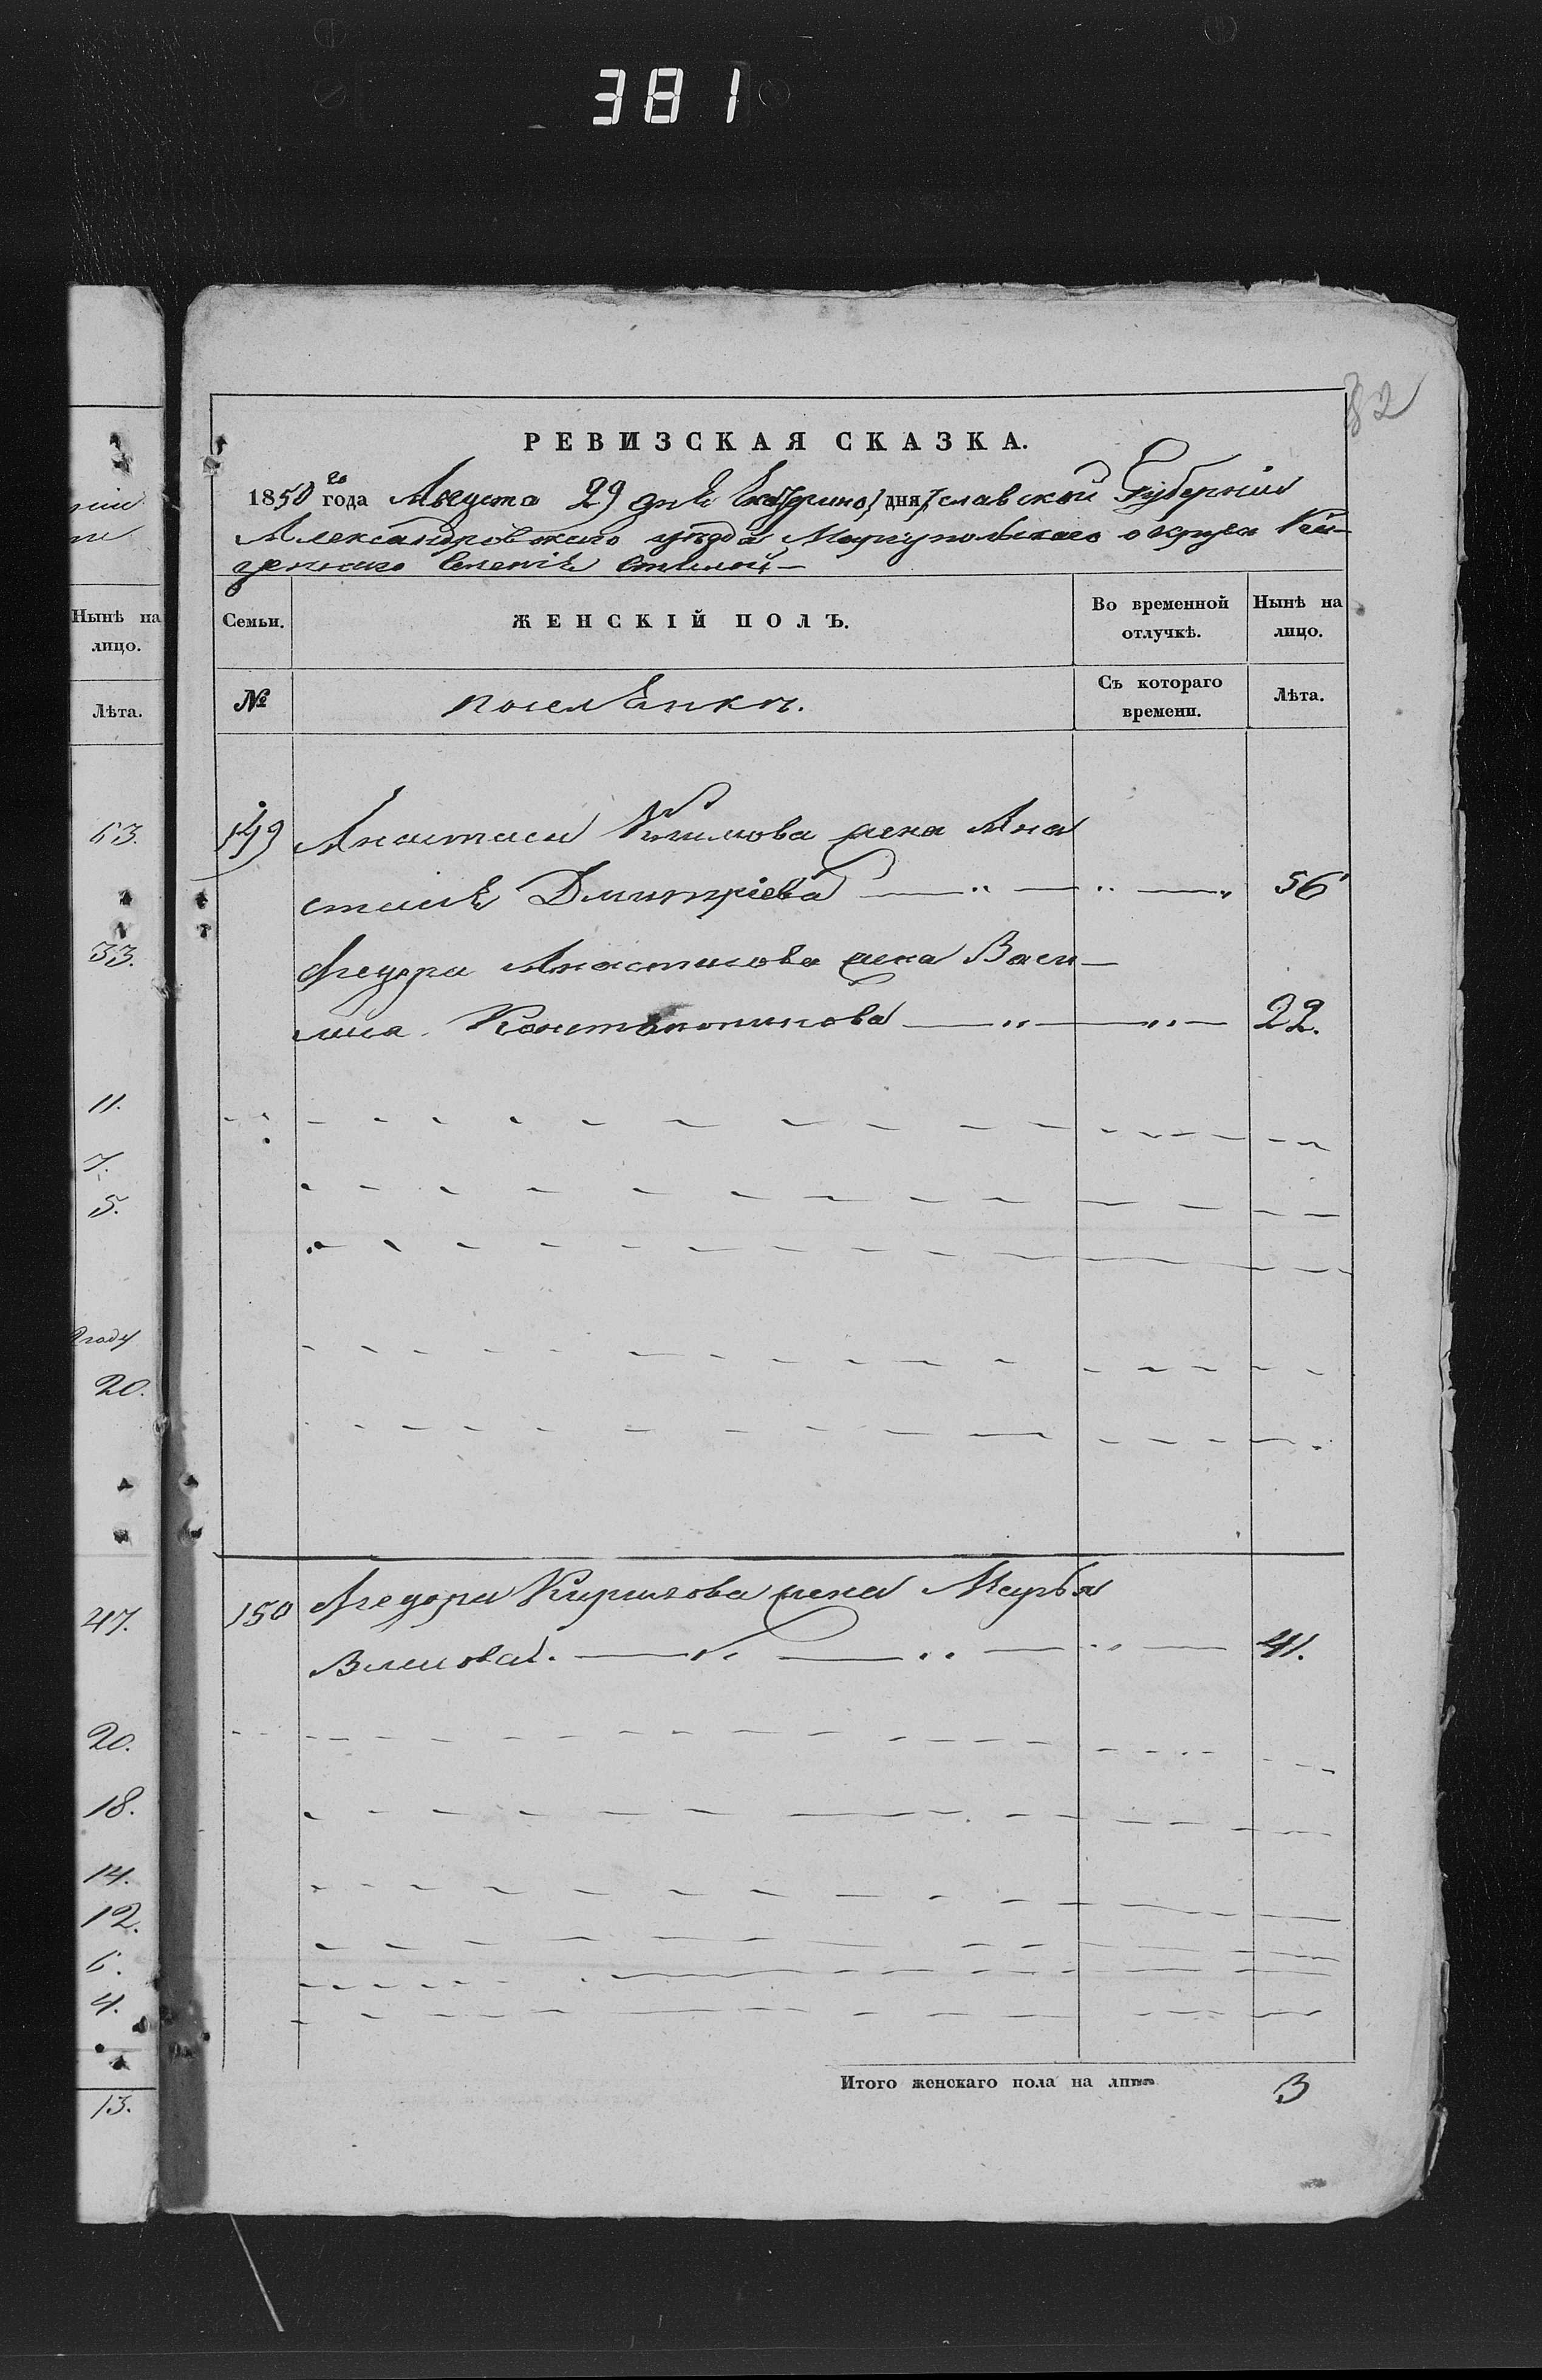 381
82
РЕВИЗСКАЯ СКАЗКА.
1850 го года Августа 29 дня Екатерино дня славской Губернiи
Александровскаго уѣзда Марiупольскаго округа Ка-
зеннаго Селенiя Стилы
Семьи. ЖЕНСКIЙ ПОЛЪ. Во временной отлучкѣ. Нынѣ на лицо.
№ поселѣнкъ. Съ котораго времени. Лѣта.
149 Анастаса жена Ана
стасiя Дмитрiева 56
Федора Анастасова жена Васи-
лиса Константинова 22.
150 Федора Кирилова жена Марья
Власова. 41.
Итого женскаго пола на лицо 3
Нынѣ на
лицо.
Лѣта.
63.
33.
11.
7.
5.
году
20.
47.
20.
18.
14.
12.
6.
4.
13.